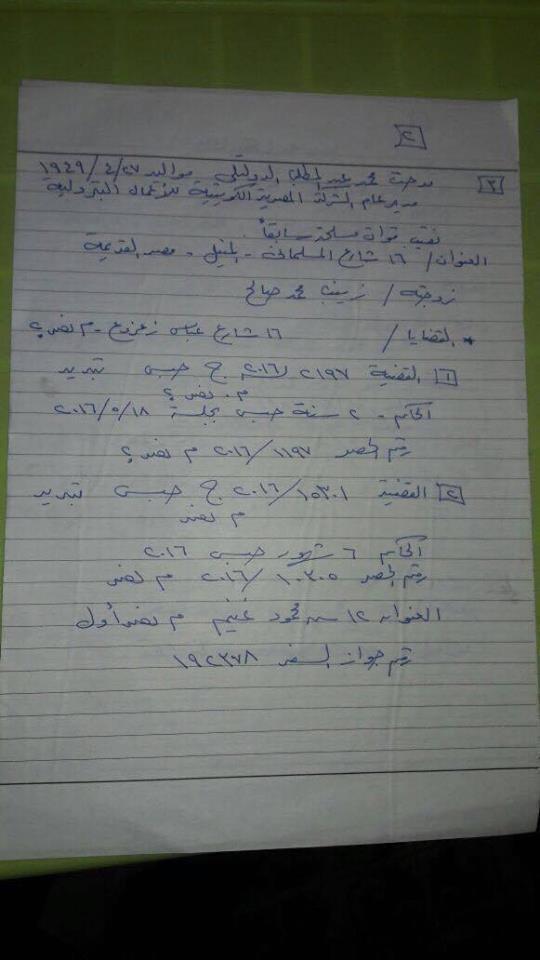 [٢]
[٣] مدحت محمد عبد المطلب مواليد ٢٧/٤/١٩٤٩
مدير عام الشركة المصرية الكويتية للأعمال البترولية
نقيب قوات مسلحة سابقاً
العنوان / ١٦ شارع السلماني - المنيل - مصر القديمة
زوجته / زينب محمد صالح
* القضايا / ١٦ شارع عباس - م نصر
[١] القضية ٢١٩٧ / ٢٠١٦ ج حبس تبديد
م. نصر
الحكم - ٢ سنة حبس بجلسة ١٨/٥/٢٠١٦
رقم الحصر ١١٩٧ / ٢٠١٦ م نصر
[٢] القضية ١٥٣٠١ / ٢٠١٦ ج حبس تبديد
م نصر
الحكم ٦ شهور حبس ٢٠١٦
رقم الحصر ١٠٣٠٥ / ٢٠١٦ م نصر
العنوان ١٢ ش محمود غنيم م نصر أول
رقم جواز السفر ١٩٢٣٧٨